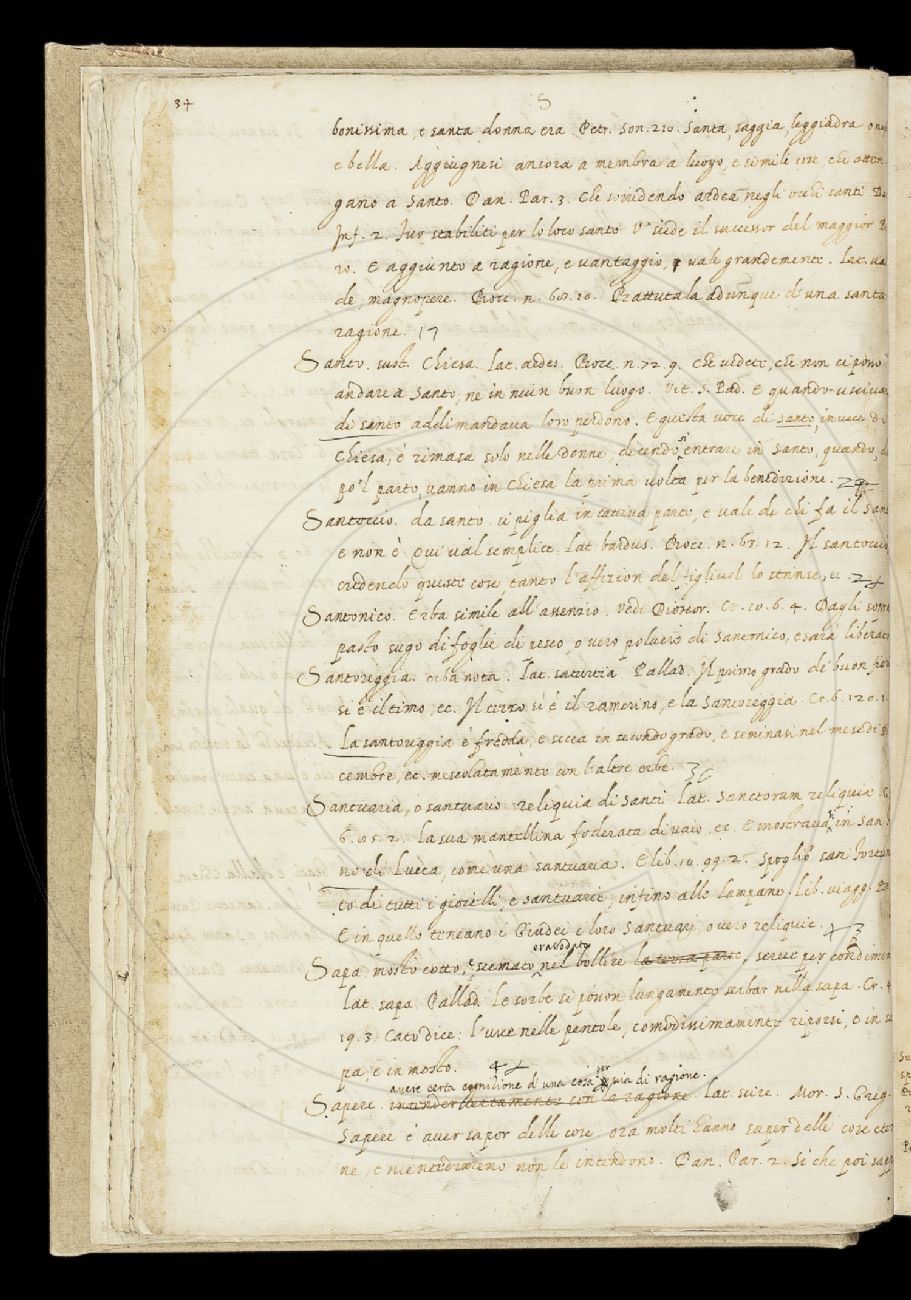 34
S
bonissima, e santa donna era Petr. son. 210. Santa, saggia, leggiadra one
e bella. Aggiugnesi ancora a membra a luogo, e simili cose che atten
gano a Santo. Dan. Par. 3. Che sorridendo ardea negli occhi santi D
Inf. 2. Fur stabiliti per lo loco santo V' siede il successor del maggior P
20. E aggiunto a ragione, e vantaggio, vale grandemente. lat. va
de, magnopere. Bocc. n. 60. 10. Prattutala adunque d'una santa
ragione. 17
Santo. sust. Chiesa. lat. aedes. Bocc. n. 72. 9. Che vedete, che non ci posso
andare a Santo, ne in niun buon luogo. Vit. S. Pad. E quando usciva
di santo addimandava loro perdono. E questa voce di santo, invece di
Chiesa, è rimasa solo nelle donne, dicendosi entrare in Santo, quando, d
po'l parto, vanno in Chiesa la prima volta per la benedizione.
Santoccio. da santo. si piglia in cattiva parte, e vale di chi fa il San
e non è. Qui val semplice. lat. bardus. Bocc. n. 65. 12. Il santoccio
credendo queste cose, tanto l'affezion del figliuol lo strinse, ec. 24
Santonico. Erba simile all'assenzio. Vedi Dioscor. Cr. 10. 6. 4. Dagli sopra
pasto sugo di foglie di pesco, o vero polvere di Santonico, e sarà liberat
Santoreggia. erba nota. lat. satureia Pallad. Il primo grado de' buon fior
si è il timo, ec. Il terzo si è il ramerino, e la Santoreggia. Cr. 6. 120. 1.
La santoreggia è fredda, e secca in secondo grado, e seminasi nel mese di
cembre, ec. mescolatamente con l'altre erbe. 36
Santuaria, o santuario reliquia di Santi. lat. Sanctorum reliquiae. G
6. 85. 2. La sua mantellina foderata di vaio, ec. E mostravasi in San
no di Lucca, come una santuaria. E lib. 10. 99. 2. Spogliò san Fortun
to di tutti i gioielli, e santuarie, infino alle lampane. Lib. viagg.
E in quello teneano i Giudei i loro Santuarj, o vero reliquie. 43
Sapa. mosto cotto, e scemato evaporato nel bollire la terza parte, serve per condimen
lat. sapa. Pallad. Le sorbe si posson lungamente serbar nella sapa. Cr. 4
19. 3. Cato dice: l'uve nelle pentole, comodissimamente riporsi, e in sa
pa, e in mosto. 48
avere certa cognizione d'una cosa per via di ragione.
Sapere. intender certamente con la ragione. lat. scire. Mor. S. Greg.
Sapere è aver sapor delle cose: ora molti hanno saper delle cose eter
ne, e nientedimeno non le intendono. Dan. Par. 2. Si che poi sapp